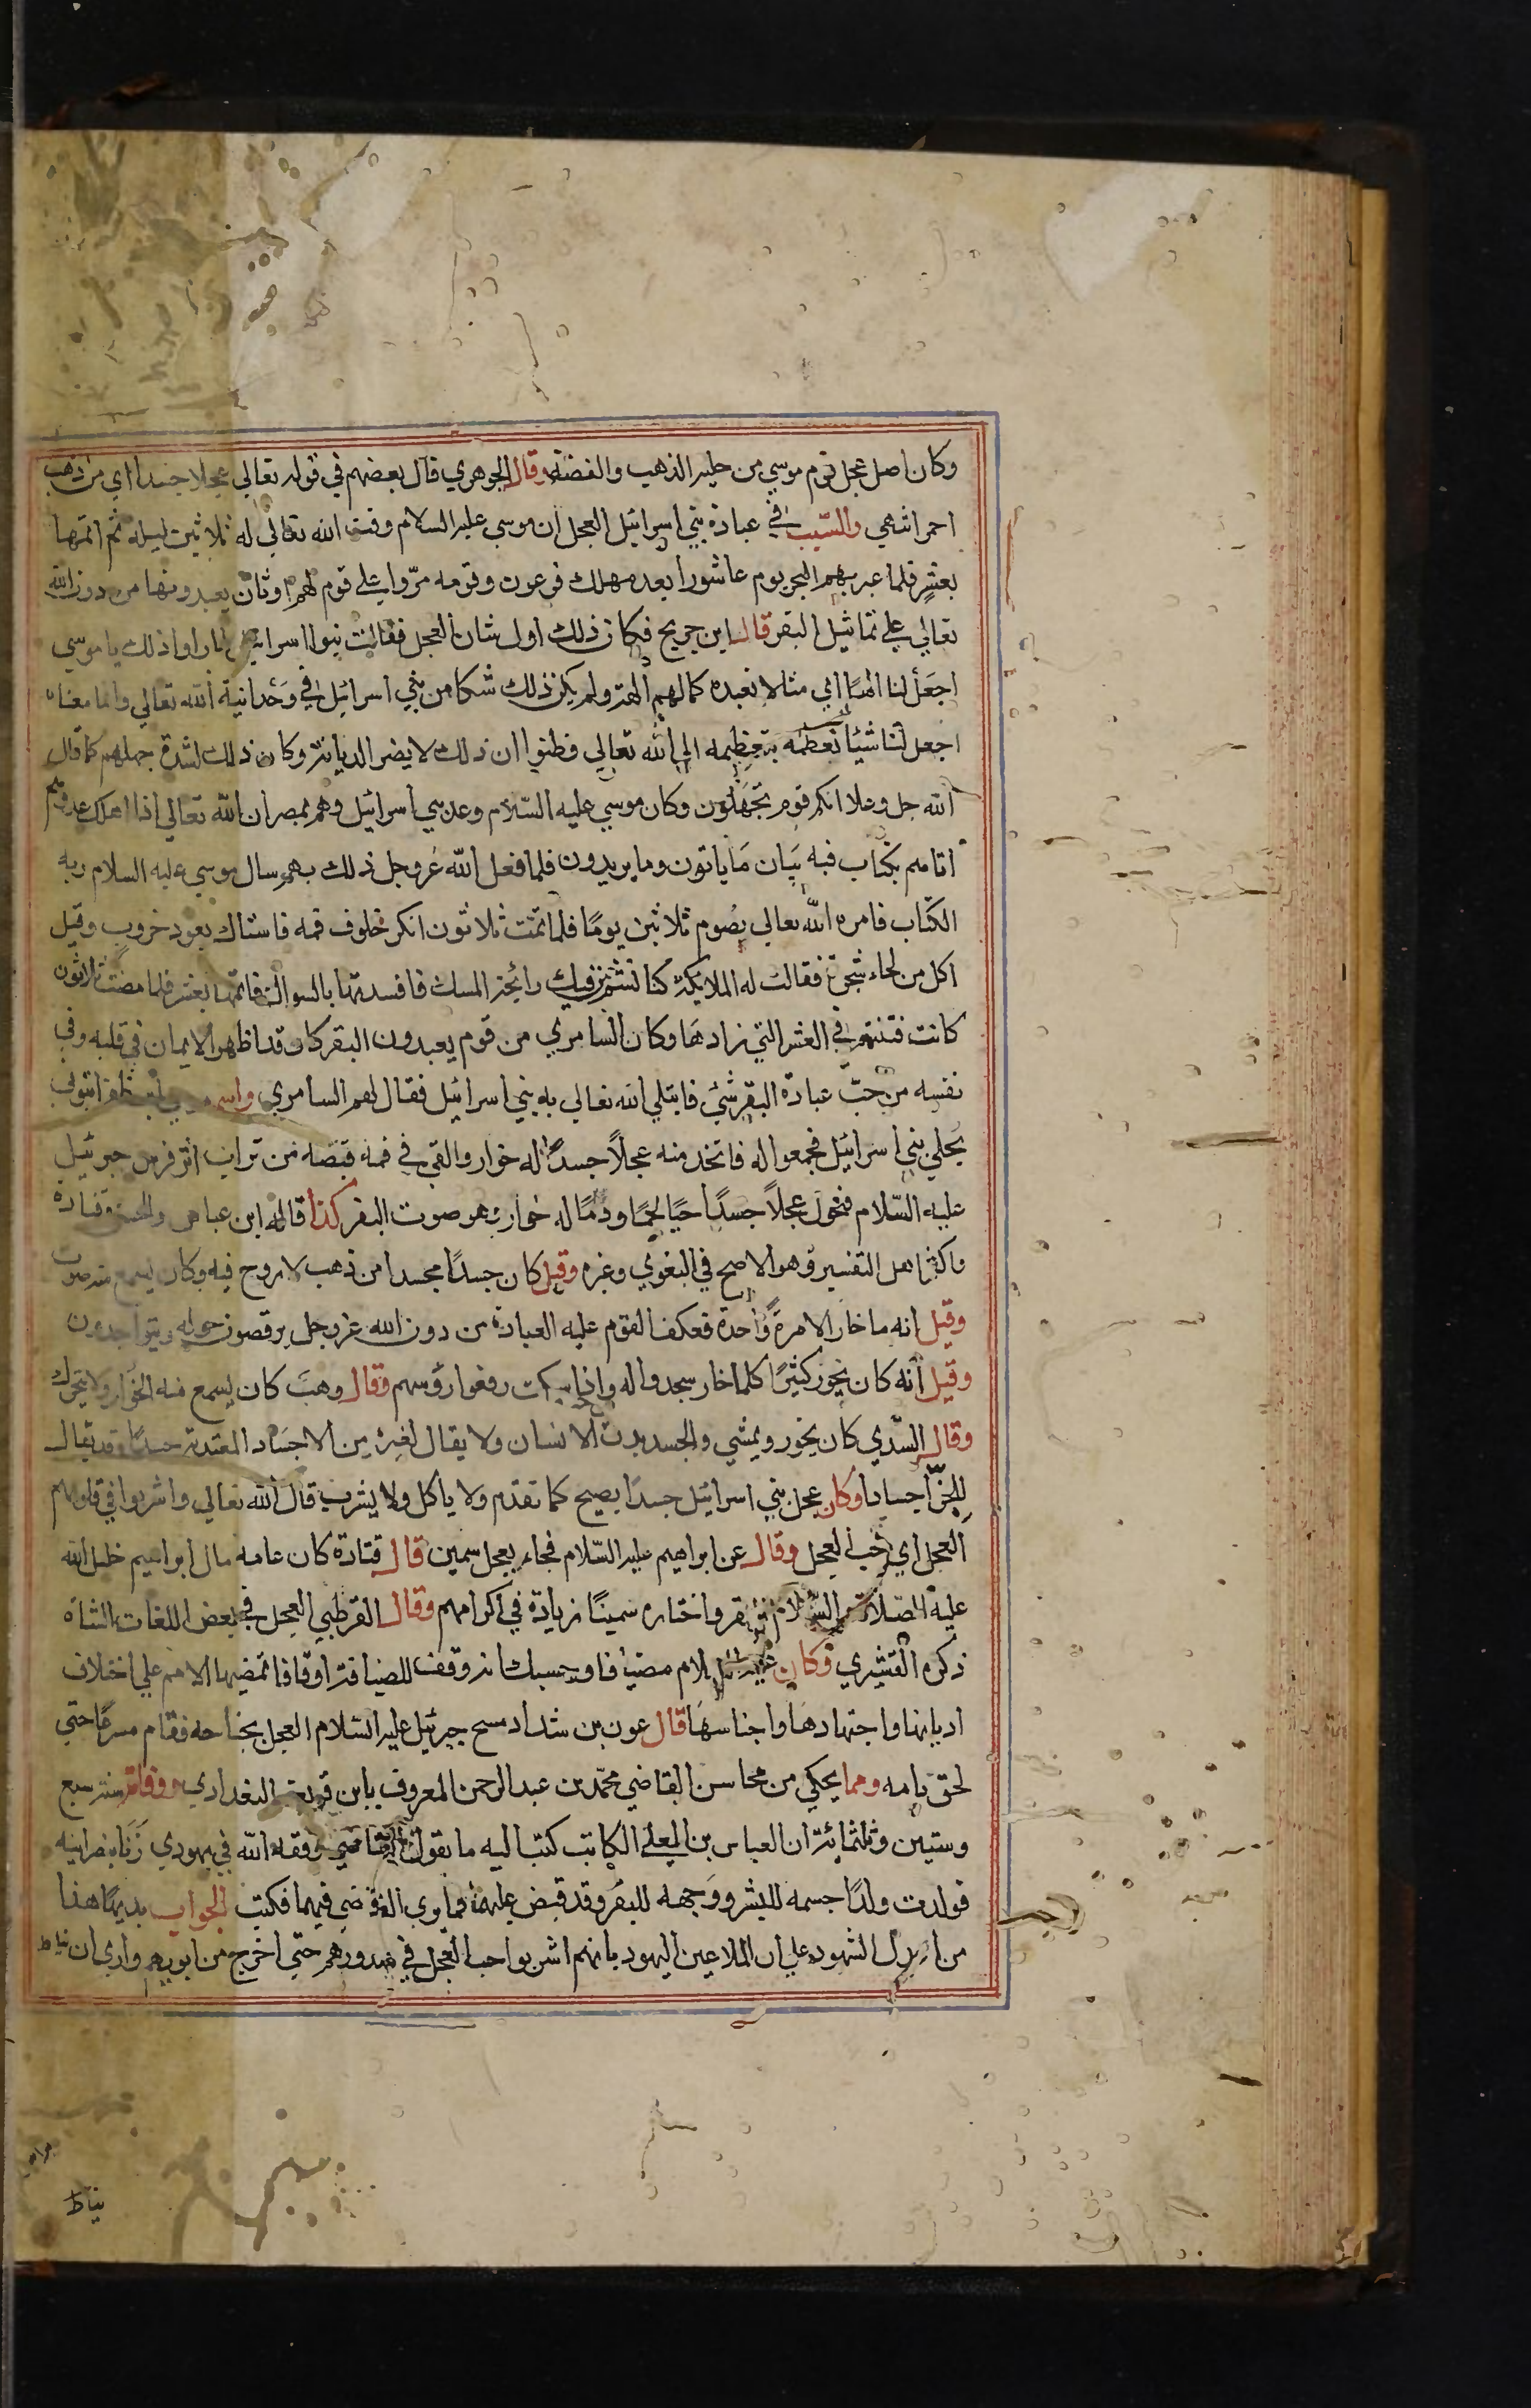 وكان اصل عجل قوم موسي من حليه الذهب والفضة وقال الجوهري قال بعضهم في قوله تعالي عجلا جسدا اي من ذهب
احمر انتهي والسبب في عبادة بني اسرائيل العجل ان موسي عليه السلام وقت الله تعالي له ثلاثين ليله ثم اتمها
بعشر فلما عبر بهم البحر يوم عاشورا بعد مهلك فرعون وقومه مروا علي قوم لهم اوثان يعبدونها من دون الله
تعالي علي تماثيل البقر قال ابن جريج فكان ذلك اول شان العجل فقالت بنوا اسرائيل لما راوا ذلك يا موسي
اجعل لنا الهًا اي مثالا نعبده كما لهم الهة ولم يكن ذلك شكا من بني اسرائيل في وحدانية الله تعالي وانما معناه
اجعل لنا شيئا نعظمه بتعظيمه الي الله تعالي فظنوا ان ذلك لا يضر الديانة وكان ذلك لشدة جهلهم كما قال
الله جل وعلا انكم قوم تجهلون وكان موسي عليه السلام وعد بني اسرائيل وهم بمصر ان الله تعالي اذا اهلك عدوهم
اتاهم بكتاب فيه بيان ما ياتون وما يريدون فلما فعل الله عز وجل ذلك بهم سال موسي عليه السلام ربه
الكتاب فامره الله تعالي بصوم ثلاثين يومًا فلما تمت ثلاثون انكر خلوف فمه فاستاك بعود خروب وقيل
اكل من لحاء شجرة فقالت له الملايكة كنا نشم من فيك رائحة المسك فافسدتها بالسواك فاتمها بعشر فلما مضت ثلاثون
كانت فتنتهم في العشر التي زادها وكان السامري من قوم يعبدون البقر كان قد اظهر الايمان في قلبه وفي
نفسه من حب عبادة البقر شئ فابتلي الله تعالي به بني اسرائيل فقال لهم السامري واسمه موسي ابن ظفر اتوني
بحلي بني اسرائيل فجمعوا له فاتخذ منه عجلاً جسدًا له خوار والقي في فمه قبضة من تراب اثر فرس جبرئيل
عليه السلام فتحول عجلاً جسدًا حيًا لحمًا ودمًا له خوار وهو صوت البقر كذا قاله ابن عباس والحسن وقتادة
واكثر اهل التفسير وهو الاصح في البغوي وغيره وقيل كان جسدًا مجسدا من ذهب لا روح فيه وكان يسمع منه صوت
وقيل انه ما خار الا مرةً واحدة فعكف القوم عليه العبادة من دون الله عز وجل يرقصون حوله ويتواجدون
وقيل انه كان يخور كثيرًا كلما خار سجدوا له واذا سكت رفعوا رؤسهم وقال وهب كان يسمع منه الخوار ولا يتحرك
وقال السدي كان يخور ويمشي والجسد بدن الانسان ولا يقال لغيره من الاجساد المغتدية جسدًا وقد يقال
للجن اجسادا وكان عجل بني اسرائيل جسدًا يصيح كما تقدم ولا ياكل ولا يشرب قال الله تعالي واشربوا في قلوبهم
العجل اي حب العجل وقال عن ابراهيم عليه السلام فجاء بعجل سمين قال قتادة كان عامة مال ابراهيم خليل الله
عليه الصلاة والسلام البقر واختاره سمينًا زيادة في اكرامهم وقال القرطبي العجل في بعض اللغات الشاه
ذكره القشيري وكان عليه السلام مضيافا وحسبك انه وقف للضيافة اوقافا تمضيها الامم علي اختلاف
اديانها واجتهادها واجناسها قال عون بن شداد مسح جبرئيل عليه السلام العجل بجناحه فقام مسرعًا حتي
لحق بامه ومما يحكي من محاسن القاضي محمد بن عبد الرحمن المعروف بابن قريعة البغدادي ووفاته سنة سبع
وستين وثلثمائة ان العباس بن المعلي الكاتب كتب اليه ما يقول القاضي وفقه الله في يهودي زنا بنصرانيه
فولدت ولدًا جسمه للبشر ووجهه للبقر وقد قبض عليهما فما يري القاضي فيهما فكتب الجواب بديهًا هذا
من اعدل الشهود علي ان الملاعين اليهود بانهم اشربوا حب العجل في صدورهم حتي اخرج من ابورهم واري ان يناط
يناط